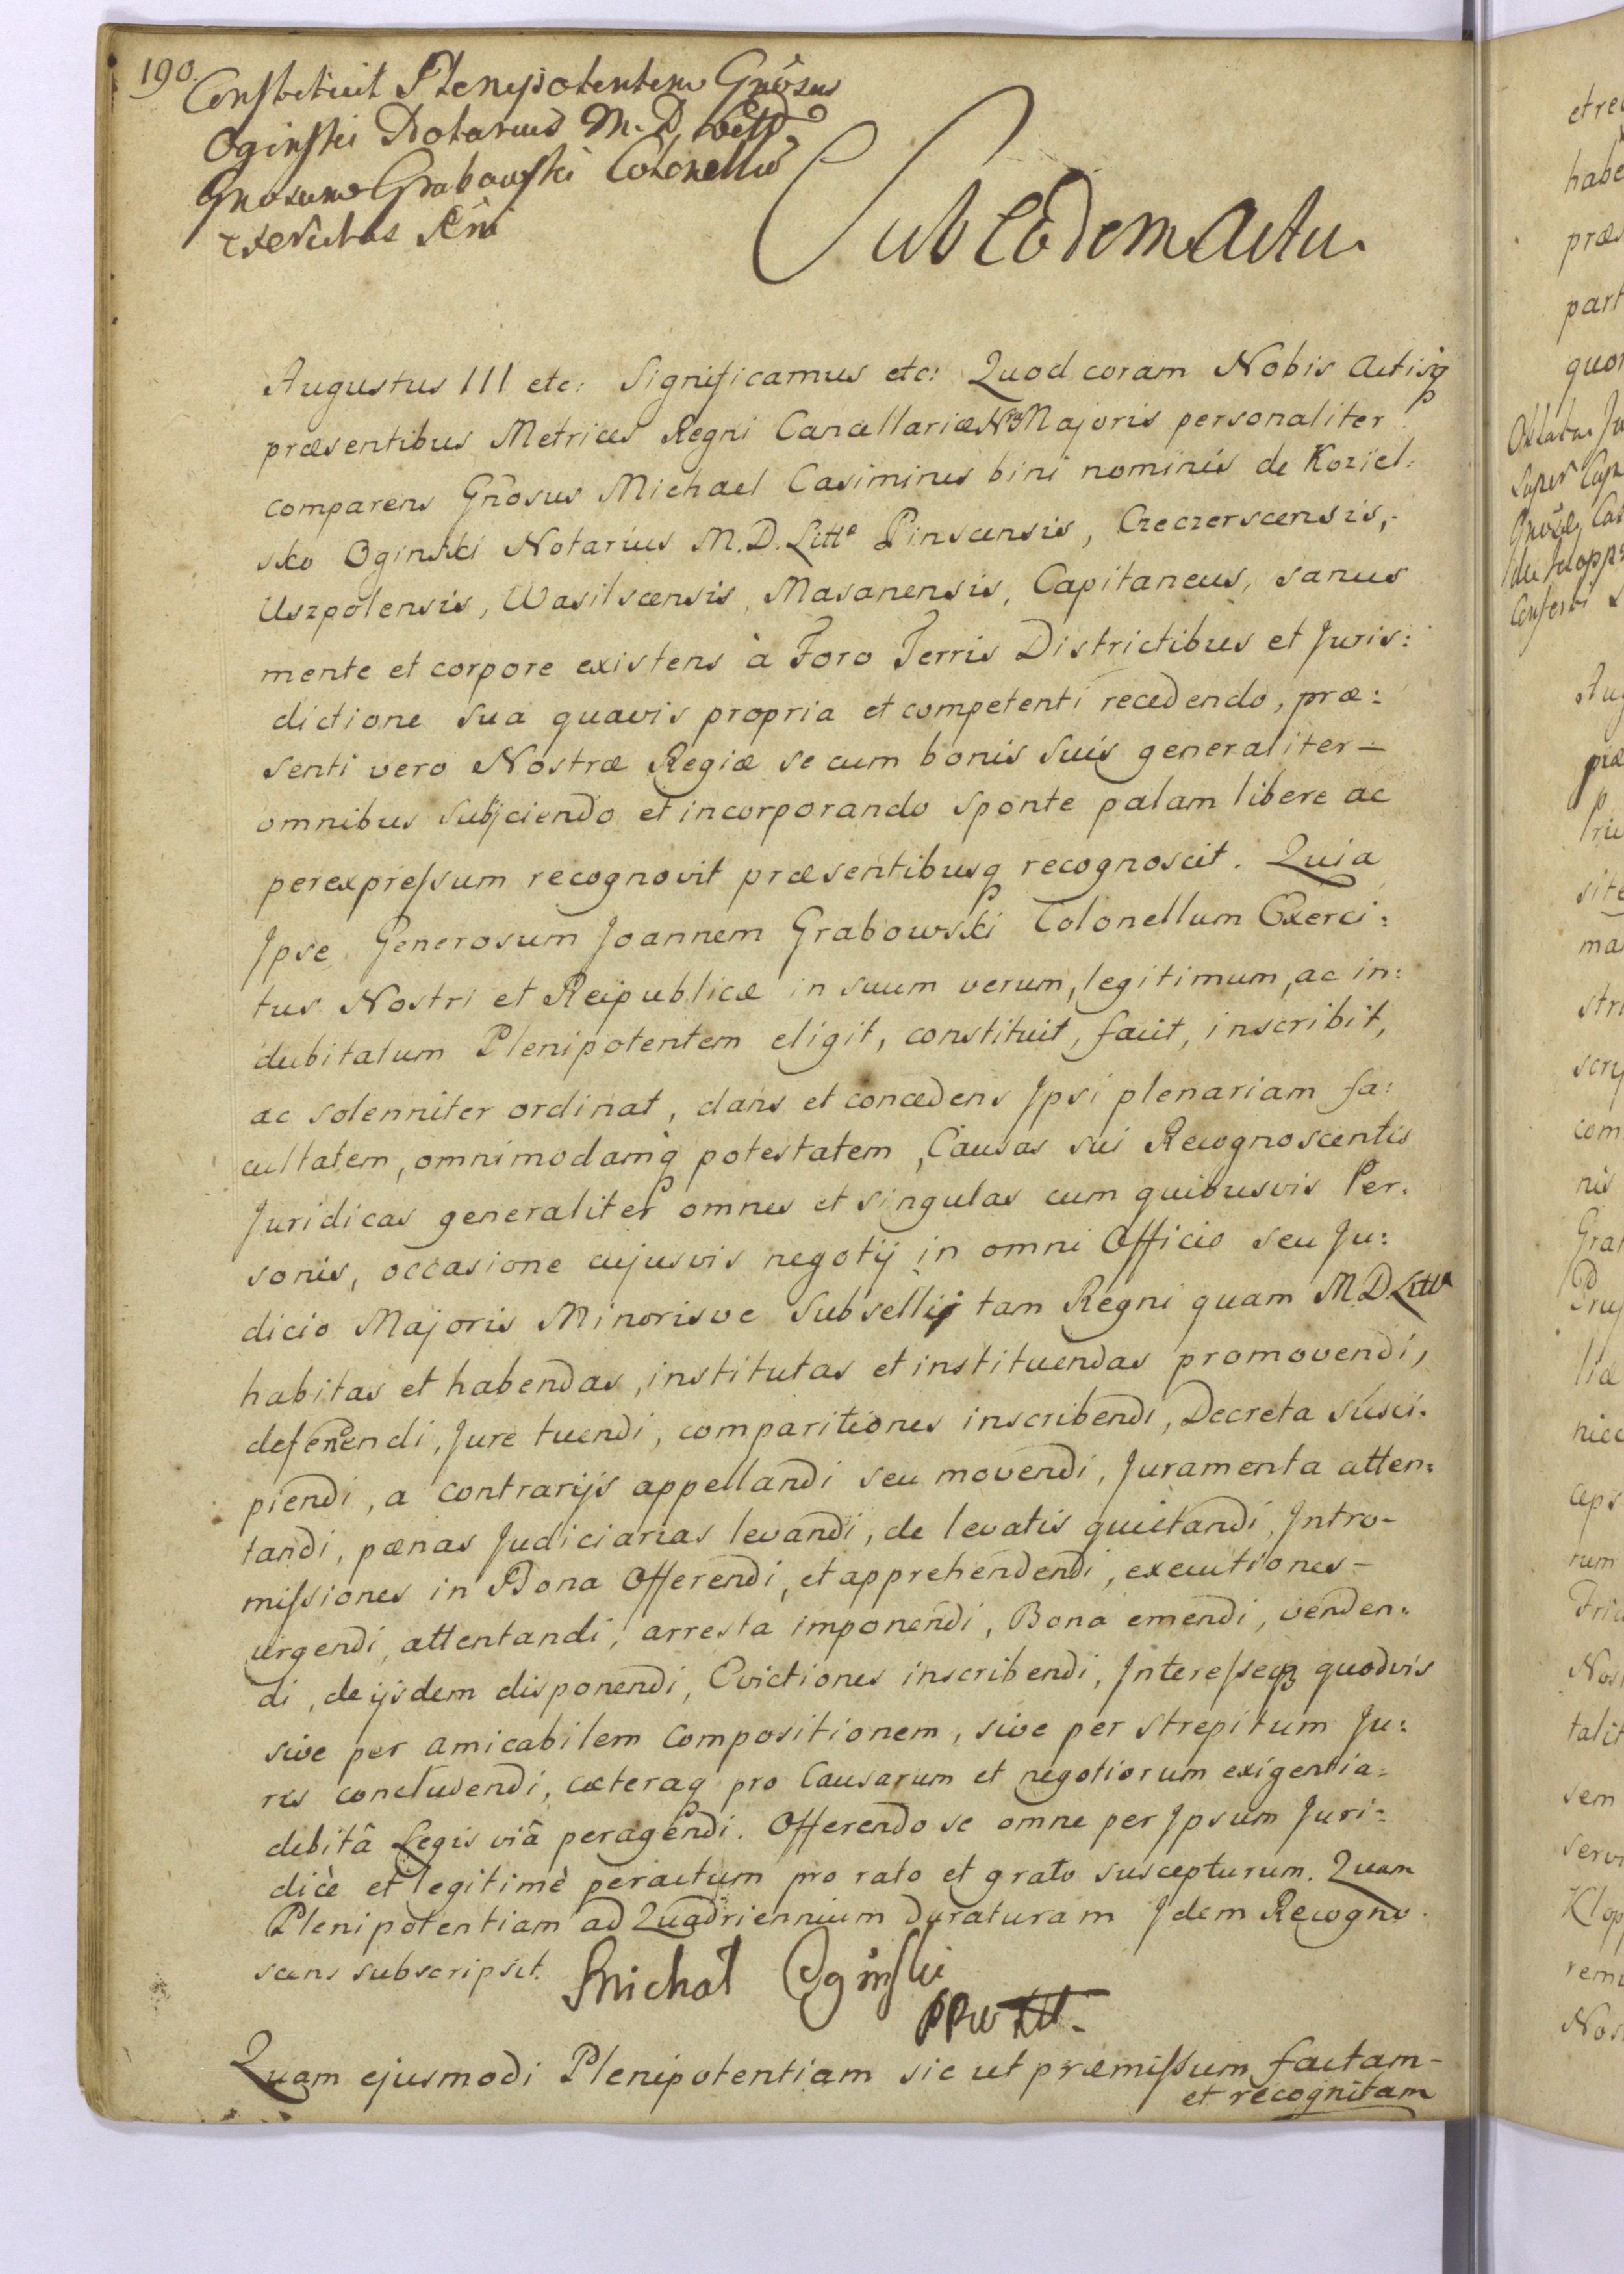 190.
Constituit Plenipotentem Gnōsus
Oginski Notarius M. D. Litt
Gnosum Grabowski Colonellū
Exercitus
Sub Eodem Actu.
Augustus III etc: Significamus etc: Quod coram Nobis Actisq
præsentibus Metrices Regni Cancellariæ Nræ Majoris personaliter
comparens Gnōsus Michael Casimirus bini nominis de Koziel:
sko Oginski Notarius M. D. Littæ Pinscensis, Czeczerscensis,
Uszpolensis, Wasilscensis, Masanensis, Capitaneus, sanus
mente et corpore existens à Foro Terris Districtibus et Juris:
dictione sua quavis propria et competenti recedendo, præ:
senti vero Nostræ Regiæ se cum bonis suis generaliter –
omnibus subjiciendo et incorporando sponte palam libere ac
per expreſsum recognovit præsentibusq recognoscit. Quia
Ipse Generosum Joannem Grabowski Colonellum Exerci:
tus Nostri et Reipublicæ in suum verum, legitimum, ac in:
dubitatum Plenipotentem eligit, constituit, facit, inscribit,
ac solenniter ordinat, dans et concedens Ipsi plenariam fa:
cultatem, omnimodamq potestatem, Causas sui Recognoscentis
Juridicas generaliter omnes et singulas cum quibusvis Per:
sonis, occasione cujusvis negotij in omni Officio seu Ju:
dicio Majoris Minorisve Subsellij tam Regni quam M. D. Littæ
habitas et habendas, institutas et instituendas promovendi,
defendendi, Jure tuendi, comparitiones inscribendi, Decreta susci:
piendi, a contrarijs appellandi seu movendi, Juramenta atten:
tandi, pænas Judiciarias levandi, de levatis quietandi, Intro-
miſsiones in Bona Offerendi, et apprehendendi, executiones –
urgendi, attentandi, arresta imponendi, Bona emendi, venden:
di, de ijsdem disponendi, Evictiones inscribendi, Intereſseq quodvis
sive per amicabilem compositionem, sive per strepitum Ju:
ris concludendi, cæteraq pro Causarum et negotiorum exigentia:
debitâ Legis viâ peragendi. Offerendo se omne per Ipsum Juri:
dicè et legitimè peractum pro rato et grato suscepturum. Quam
Plenipotentiam ad Quadriennium duraturam Idem Recogno:
scens subscripsit. Michał Oginski
PPW
Quam ejusmodi Plenipotentiam sic ut præmiſsum factam –
et recognitam